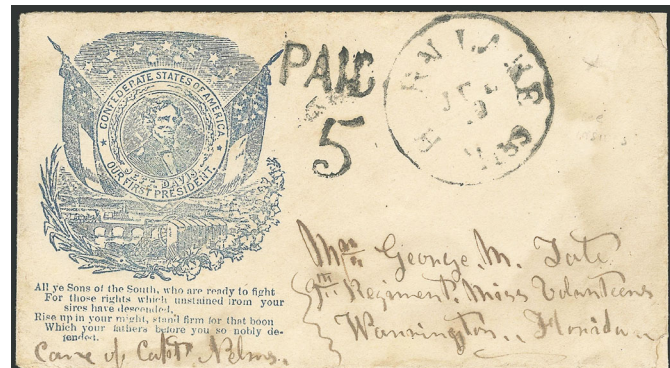 CONFEDERATE STATES OF AMERICA
JEFF. DAVIS
OUR FIRST PRESIDENT.
PAID
5
LAKE
All ye Sons of the South, who are ready to fight
For those rights which unstained from your
sires have descended,
Rise up in your might, stand firm for that boon
Which your fathers before you so nobly de-
fended.
Care of Capt Nelms.
George. M. Tate
9th Regiment. Miss Volunteers
Warrington., Florida